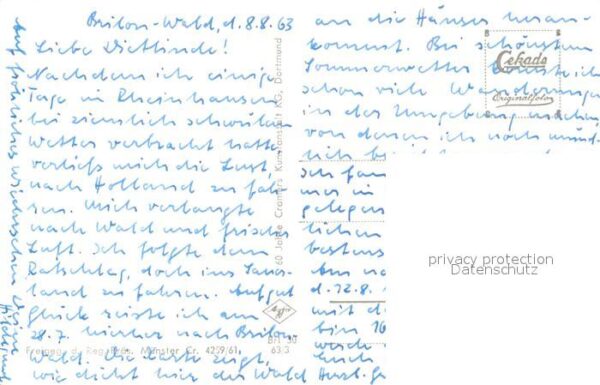 Brilon-Wald, d. 8.8.63
Liebe Dietlinde!
Nachdem ich einige
Tage in Rheinhausen
bei ziemlich schwülem
Wetter verbracht hatte
verließ mich die Lust,
nach Holland zu fah-
ren. Mich verlangte
nach Wald und frischer
Luft. Ich folgte dem
Ratschlag, doch ins Sauer-
land zu fahren. Auf gut
Glück reiste ich am
28.7. hierher nach Brilon-
Wald. Die Karte zeigt,
wie dicht hier der Wald
an die Häuser heran-
kommt. Bei schönstem
Sommerwetter konnte ich
schon viel Wanderungen
in der Umgebung machen
von denen ich noch münd-
lich
Ich
mer in
gelegen
lichen
bestens
d. 12.8.
mit d
bin 16
werde
Herzl. Gr
Auf fröhliches Wiedersehen Deine
Hildegund
60 Jahre Cramers Kunstanstalt KG, Dortmund
Cekade
Originalfoto
Agfa
BH 30
63-3
Freigeg. d. Reg. Präs. Münster Nr. Cr. 4239/61
privacy protection
Datenschutz